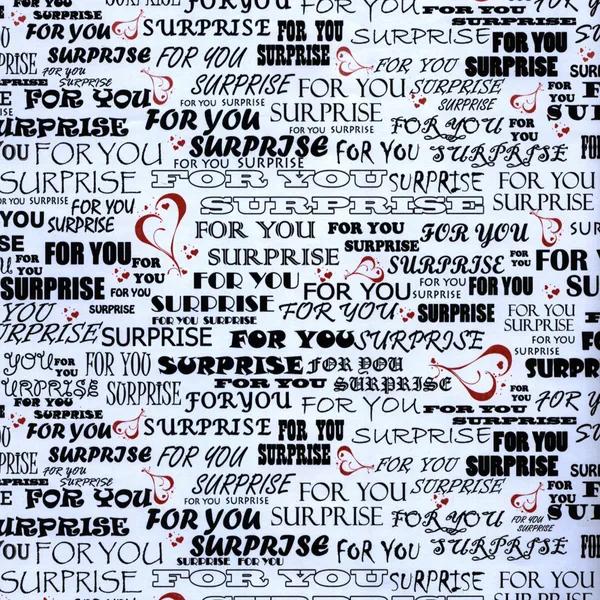 FOR YOU FOR YOU FOR YOU FOR YOU
FOR YOU SURPRISE FOR YOU SURPRISE
SURPRISE FOR YOU SURPRISE FOR YOU
SURPRISE FOR YOU SURPRISE FOR YOU SURPRISE
FOR YOU SURPRISE SURPRISE FOR YOU SURPRISE FOR YOU
FOR YOU FOR YOU SURPRISE SURPRISE
SURPRISE FOR YOU SURPRISE FOR YOU FOR YOU
FOR YOU SURPRISE
YOU FOR YOU SURPRISE FOR YOU SURPRISE
FOR YOU SURPRISE
SURPRISE FOR YOU SURPRISE FOR YOU
FOR YOU SURPRISE FOR YOU SURPRISE SURPRISE
YOU SURPRISE FOR YOU FOR YOU FOR YOU
FOR YOU SURPRISE
FOR YOU FOR YOU SURPRISE SURPRISE FOR YOU FOR YOU
SURPRISE FOR YOU FOR YOU FOR YOU FOR YOU FOR YOU
SURPRISE SURPRISE FOR YOU SURPRISE FOR YOU
YOU FOR YOU SURPRISE SURPRISE
SURPRISE SURPRISE FOR YOU SURPRISE FOR YOU
SURPRISE
YOU FOR YOU FOR YOU SURPRISE FOR YOU SURPRISE
SURPRISE SURPRISE FOR YOU SURPRISE FOR YOU
FOR YOU FOR YOU FOR YOU FOR YOU FOR YOU
SURPRISE SURPRISE
FOR YOU SURPRISE FOR YOU SURPRISE FOR YOU
SURPRISE FOR YOU SURPRISE FOR YOU SURPRISE
FOR YOU SURPRISE SURPRISE FOR YOU SURPRISE FOR YOU
FOR YOU FOR YOU SURPRISE
SURPRISE FOR YOU SURPRISE FOR YOU FOR YOU
SURPRISE
YOU FOR YOU SURPRISE FOR YOU SURPRISE
SURPRISE FOR YOU
SURPRISE FOR YOU SURPRISE FOR YOU